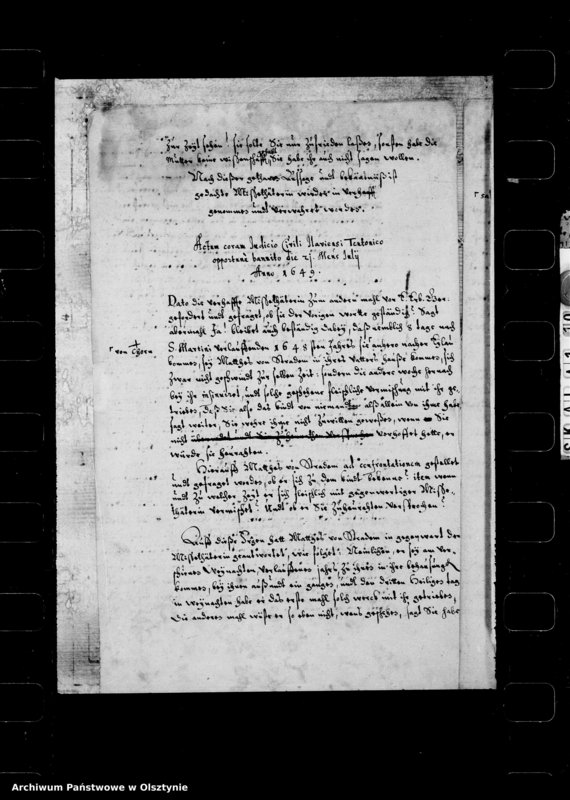 Zur Zeit sehen! sie solte Sie nun Zufrieden laßen, sonsten habe die
Mutter keine wissenschafft, Sie habe ihr auch nicht sagen wollen.
Nach dießer gethanen Außage und bekäntnüß ist
gedachte Mißethäterin wieder in verhafft
genommen und verwahret worden.
Actum coram Judicio Civili Ilaviensi Teutonico
opportunè bannito die 21. Mens Julij
Anno 1649.
Dato die verhaffte Mißethäterin Zum andern mahl vor E. Erb. Ge=
gefordert und gefraget, ob sie der Vorigen worte geständig? Sagt
abermahl Ja! bleibet auch beständig dabey, daß nemblich 8 tage nach
S. Martini verlauffenden 1648sten Jahres sie anhero nacher Eylau
von Thorn
kommen, sey Matthes von Stradem in ihres Vattern hause kommen, sich
zwar nicht geschwindt Zur selben Zeit: sondern die andere woche hernach
bey ihr und solche geschehene fleischliche Vermischung mit ihr ge=
trieben, daß Sie also das kindt von niemandt alß allein von ihme habe
sagt weiter, Sie wehre ihme nicht Zuwillen gewesen, wenn er Sie
nicht verhoffet hette, er
würde sie heurathen.
Hierauff Matthes von Stradem ad confrontationem gestellet
undt gefraget worden, ob er sich Zu dem kindt bekenne? item wenn
undt Zu welcher Zeit er sich fleischlich mit gegenwertiger Misse=
thäterin vermischet? Undt ob er Sie Zuheurathen Versprochen?
Auff dieße fragen hatt Matthes von Stradem in gegenwart der
Missethäterin geantwortet, wie folget: Nemblichen, er sey am ver=
schienen Weynachten verlauffenen jahrs Zu ihnen in ihre behausung
kommen, bey ihnen auß undt ein gangen, undt den dritten Heiligen tag
in Weynachten habe er das erste mahl solch werck mit ihr getrieben,
Die anderen mahl wüste er so eben nicht, wans geschehen, sagt Sie habe
SKALA 1:10
Archiwum Państwowe w Olsztynie